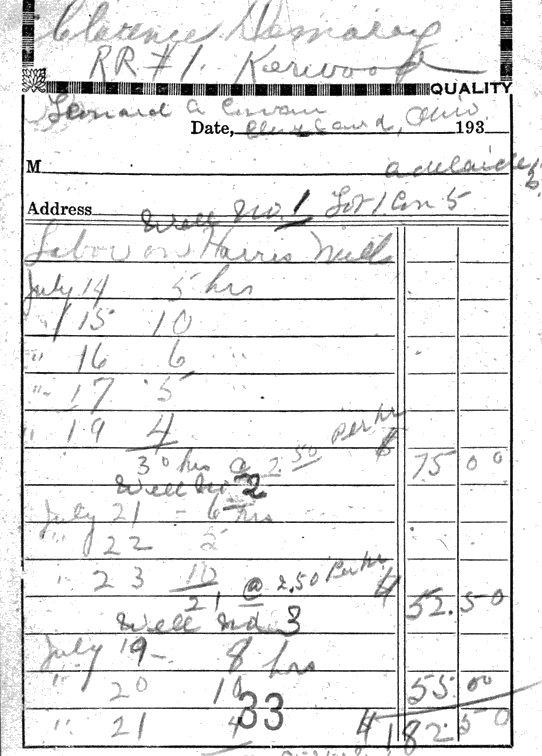 Clarence Demaray
RR #1. Kerwood
QUALITY
Leonard A Cowan
Date, Cleveland, Ohio 193
M Adelaide
Address Lot 1 Con 5
Well No. 1
Labor on Harris Well
July 14 5 hrs
" 15 10
" 16 6 "
" 17 5 "
" 19 4
30 hrs @ 2.50 per hr $ 75 00
Well No 2
July 21 - 6 hrs
" 22 5
" 23 10
21 @ 2.50 Per hr $ 52.50
Well No 3
July 19 - 8 hrs
" 20 10 55 00
" 21 4 $ 182 50
33